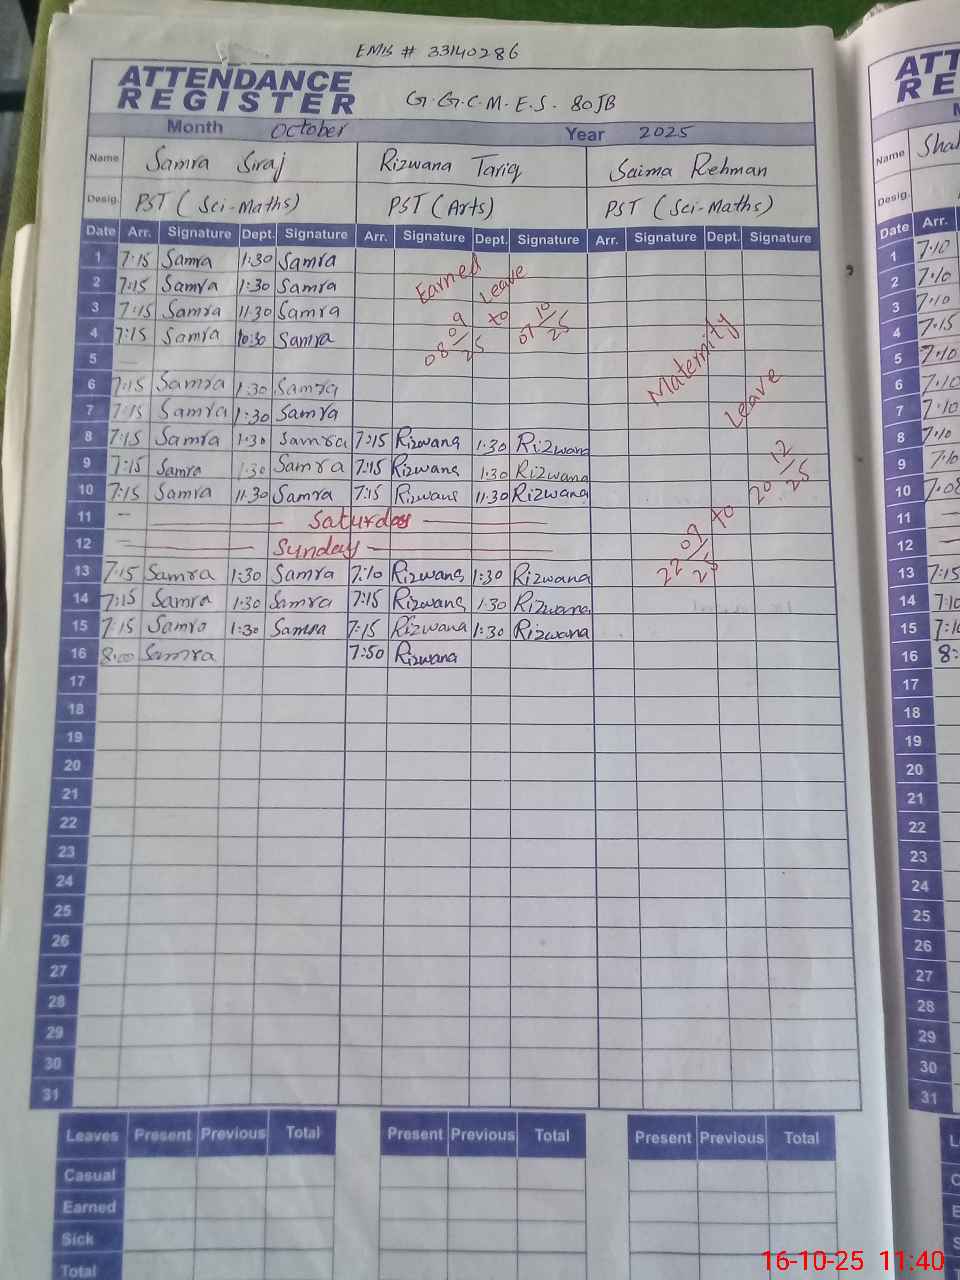 EMIS # 33140286
ATTENDANCE
REGISTER
G.G.C.M.E.S. 80JB
Month October Year 2025
Name Samra Siraj Rizwana Tariq Saima Rehman
Desig. PST (Sci-Maths) PST (Arts) PST (Sci-Maths)
Date Arr. Signature Dept. Signature Arr. Signature Dept. Signature Arr. Signature Dept. Signature
1 7:15 Samra 1:30 Samra
2 7:15 Samra 1:30 Samra
3 7:15 Samra 11:30 Samra
4 7:15 Samra 10:30 Samra
5
6 7:15 Samra 1:30 Samra
7 7:15 Samra 1:30 Samra
8 7:15 Samra 1:30 Samra 7:15 Rizwana 1:30 Rizwana
9 7:15 Samra 1:30 Samra 7:15 Rizwana 1:30 Rizwana
10 7:15 Samra 11:30 Samra 7:15 Rizwana 11:30 Rizwana
11 Saturday
12 Sunday
13 7:15 Samra 1:30 Samra 7:10 Rizwana 1:30 Rizwana
14 7:15 Samra 1:30 Samra 7:15 Rizwana 1:30 Rizwana
15 7:15 Samra 1:30 Samra 7:15 Rizwana 1:30 Rizwana
16 8:00 Samra 7:50 Rizwana
17
18
19
20
21
22
23
24
25
26
27
28
29
30
31
Earned Leave
08 9/25 to 07 10/25
Maternity Leave
22 09/25 to 20 12/25
Leaves Present Previous Total Present Previous Total Present Previous Total
Casual
Earned
Sick
Total
ATT
RE
Name Shah
Desig.
Date Arr.
1 7:10
2 7:10
3 7:10
4 7:15
5 7:10
6 7:10
7 7:10
8 7:10
9 7:10
10 7:08
11
12
13 7:15
14 7:10
15 7:10
16 8:
17
18
19
20
21
22
23
24
25
26
27
28
29
30
31
16-10-25 11:40